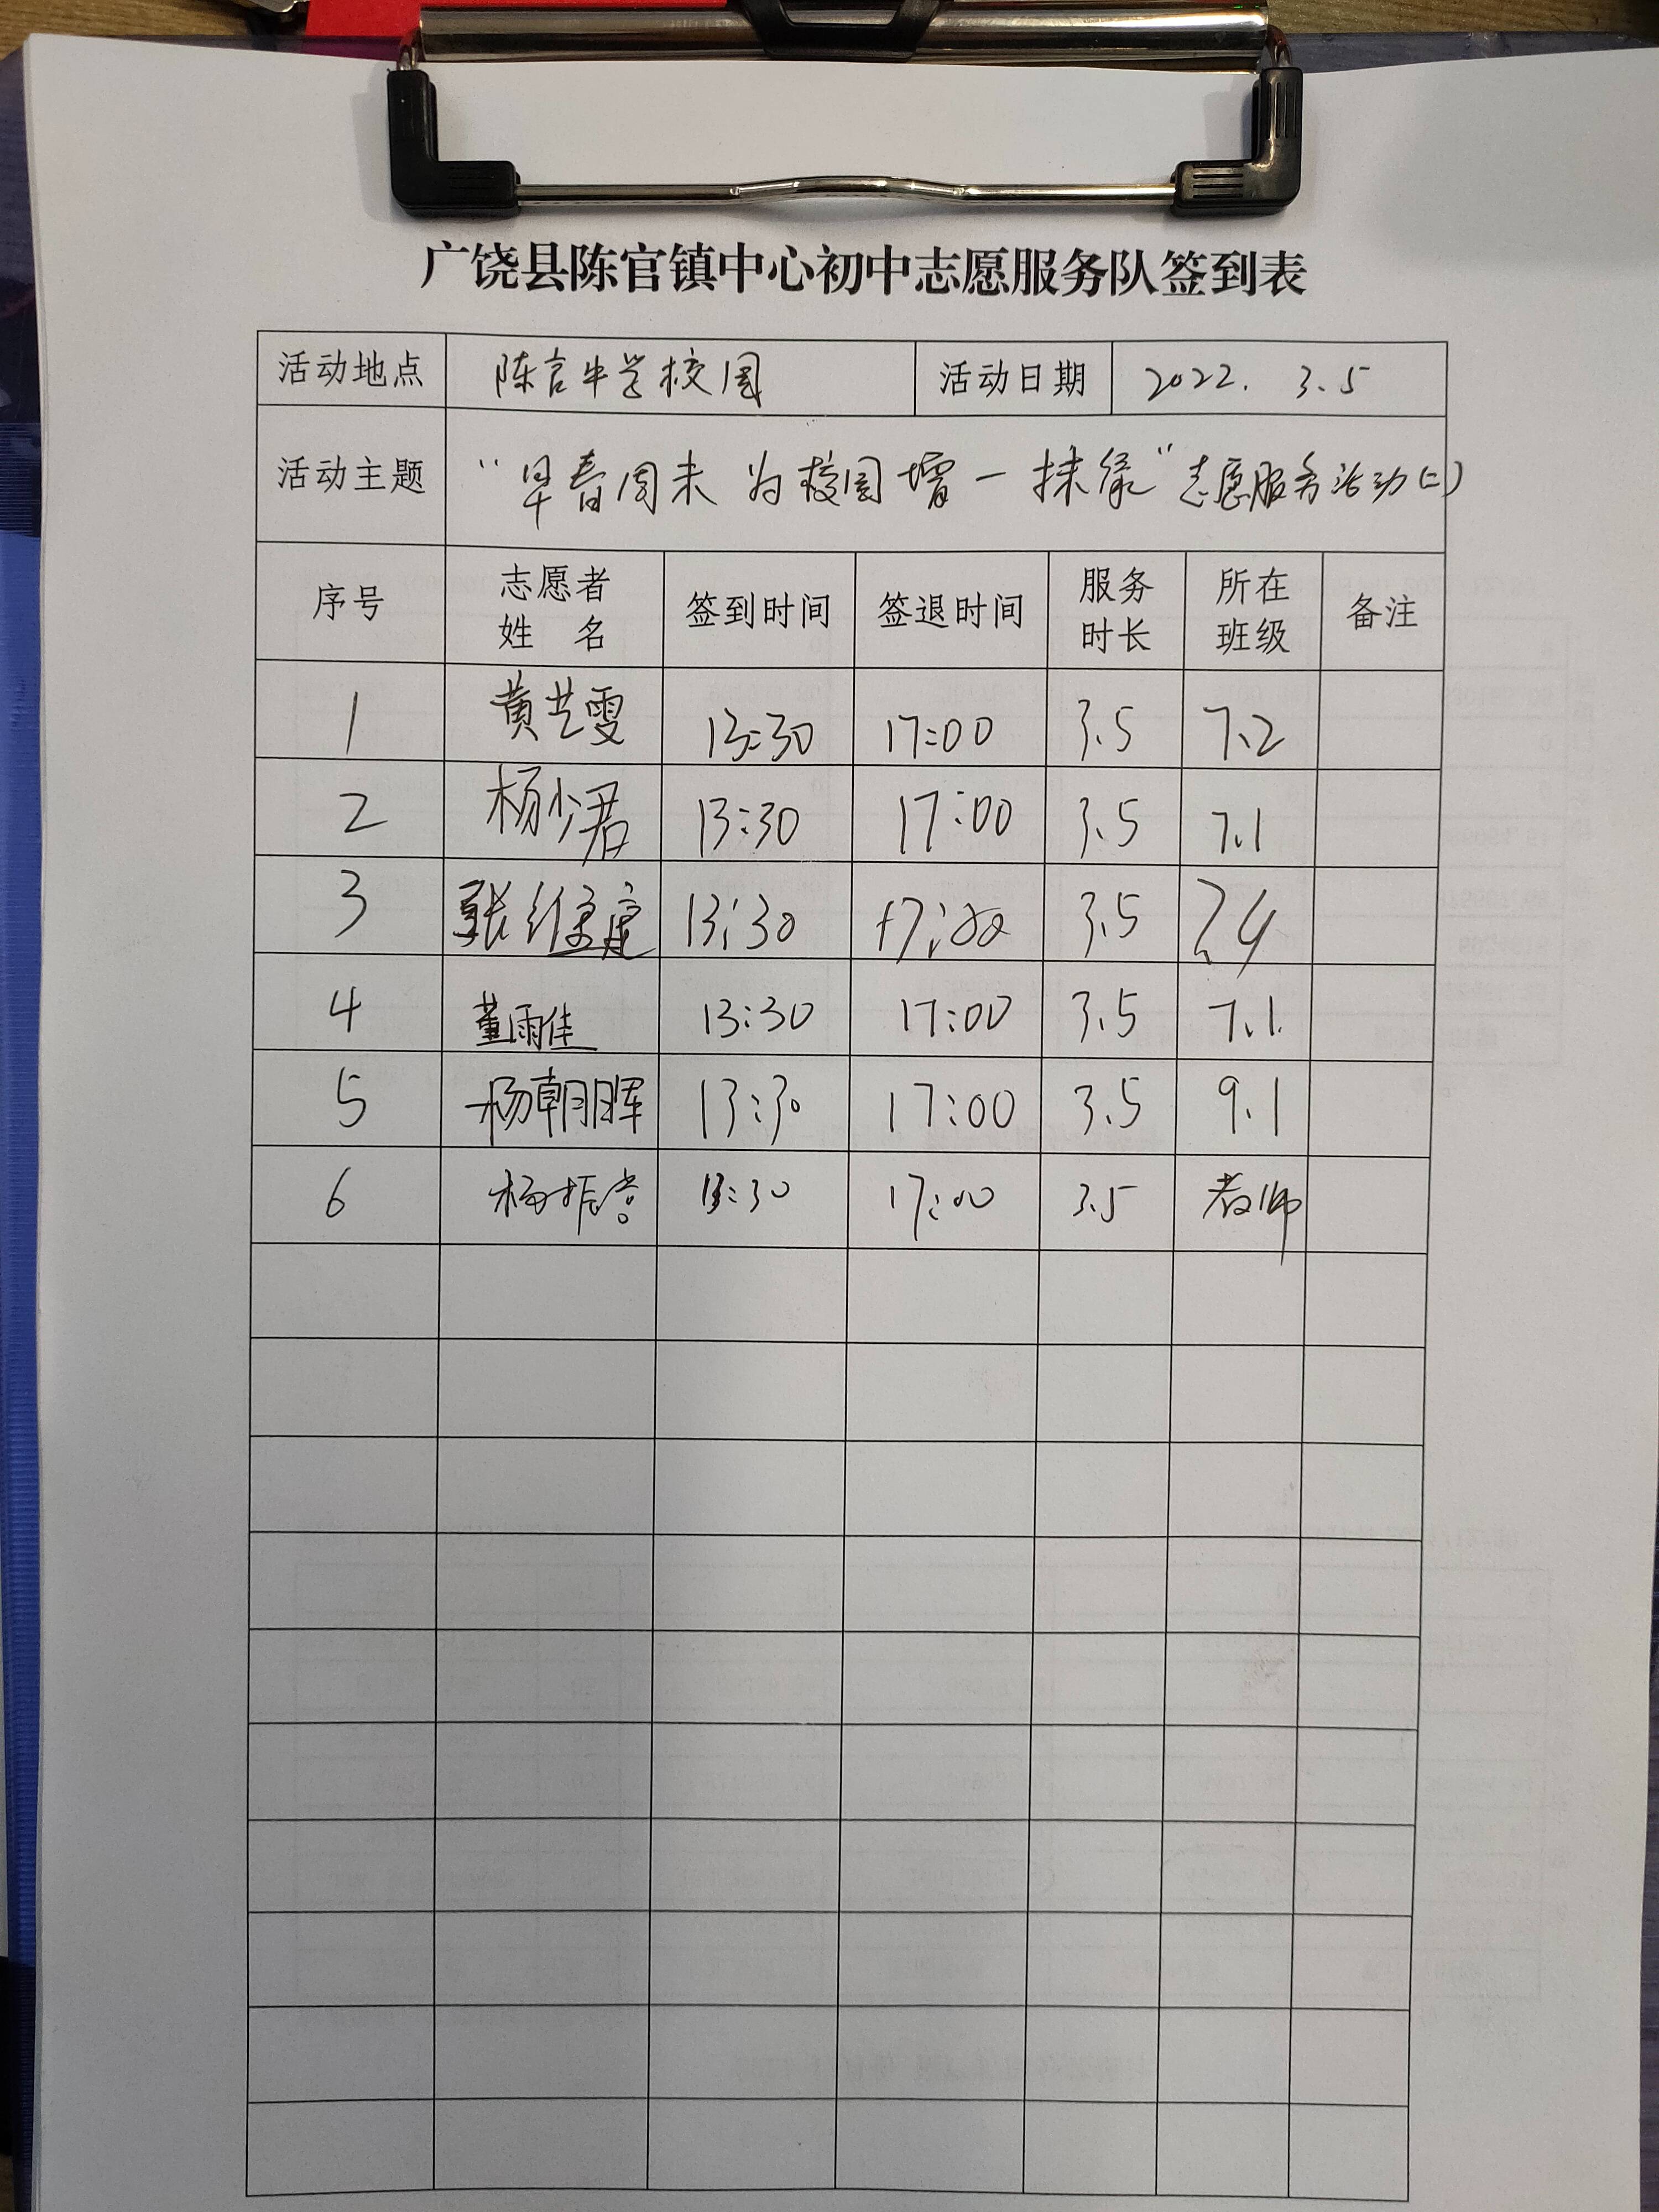 广饶县陈官镇中心初中志愿服务队签到表
活动地点 陈官中学校园 活动日期 2022. 3.5
活动主题 “早春周末 为校园增一抹绿”志愿服务活动(二)
序号 志愿者姓名 签到时间 签退时间 服务时长 所在班级 备注
1 黄艺雯 13:30 17:00 3.5 7.2
2 杨少君 13:30 17:00 3.5 7.1
3 张维 13:30 17:00 3.5 7.4
4 董雨佳 13:30 17:00 3.5 7.1
5 杨朝晖 13:30 17:00 3.5 9.1
6 杨振 13:30 17:00 3.5 教师